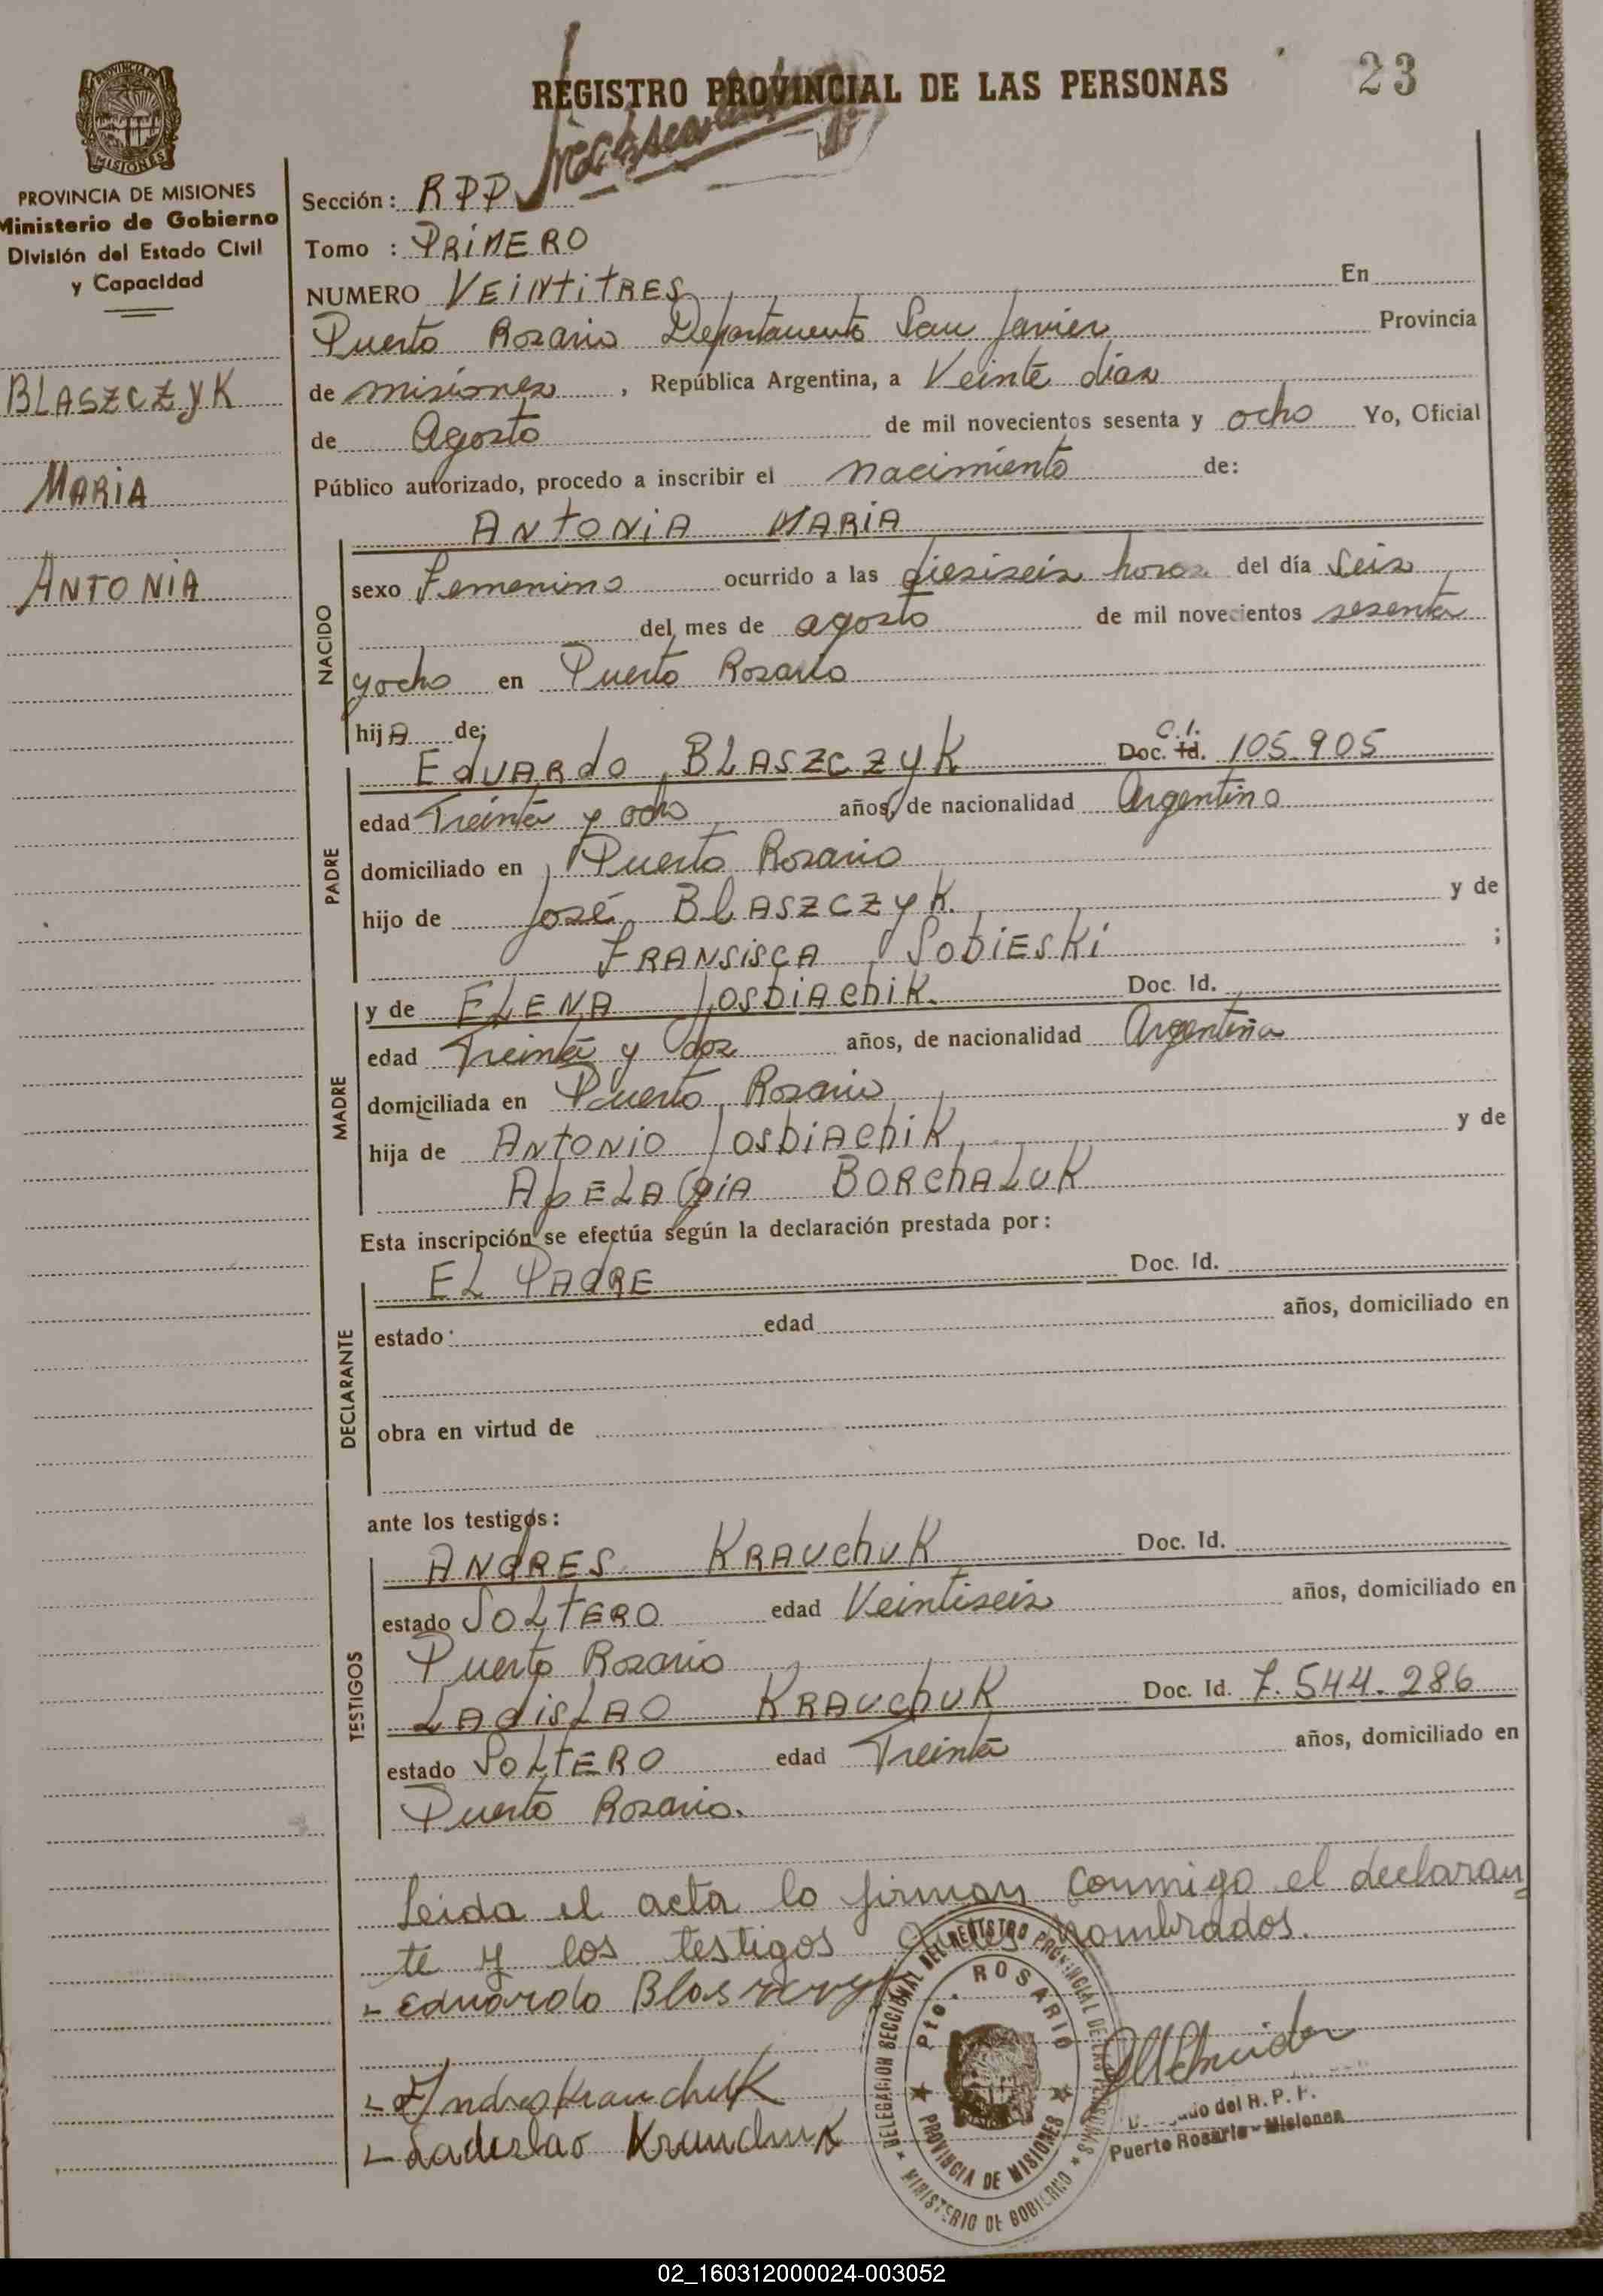 REGISTRO PROVINCIAL DE LAS PERSONAS
23
PROVINCIA DE MISIONES
Ministerio de Gobierno
División del Estado Civil
y Capacidad
BLASZCZYK
MARIA
ANTONIA
Sección: RPP
Tomo : PRIMERO
NUMERO VEINTITRES En
Puerto Rosario Departamento San Javier Provincia
de misiones, República Argentina, a Veinte dias
de Agosto de mil novecientos sesenta y ocho Yo, Oficial
Público autorizado, procedo a inscribir el nacimiento de:
NACIDO
ANTONIA MARIA
sexo Femenino ocurrido a las diesiseis horas del día seis
del mes de agosto de mil novecientos sesenta
yocho en Puerto Rosario
hijA de;
PADRE
Eduardo BLASZCZYK Doc. Id. C.I. 105.905
edad Treinta y ocho años, de nacionalidad Argentino
domiciliado en Puerto Rosario
hijo de José BLASZCZYK. y de
FRANSISCA SOBIESKI ;
MADRE
y de ELENA Doc. Id.
edad Treinta y dos años, de nacionalidad Argentina
domiciliada en Puerto Rosario
hija de ANTONIO y de
ApELAGIA BORChALUK
Esta inscripción se efectúa según la declaración prestada por:
DECLARANTE
EL PADRE Doc. Id.
estado edad años, domiciliado en
obra en virtud de
ante los testigos:
TESTIGOS
ANDRES KRAUChUK Doc. Id.
estado SOLTERO edad Veintiseis años, domiciliado en
Puerto Rosario
LADISLAO KRAUChUK Doc. Id. 7.544.286
estado SOLTERO edad Treinta años, domiciliado en
Puerto Rosario.
Leida el acta lo firman conmigo el declaran
te y los testigos nombrados.
Eduardo
Andres Krauchuk
Ladislao Krauchuk
DELEGACION SECCIONAL DEL REGISTRO PROVINCIAL DE LAS PERSONAS
MINISTERIO DE GOBIERNO
Pto. ROSARIO
PROVINCIA DE MISIONES
del R. P. P.
Puerto Rosario - Misiones
02_160312000024-003052